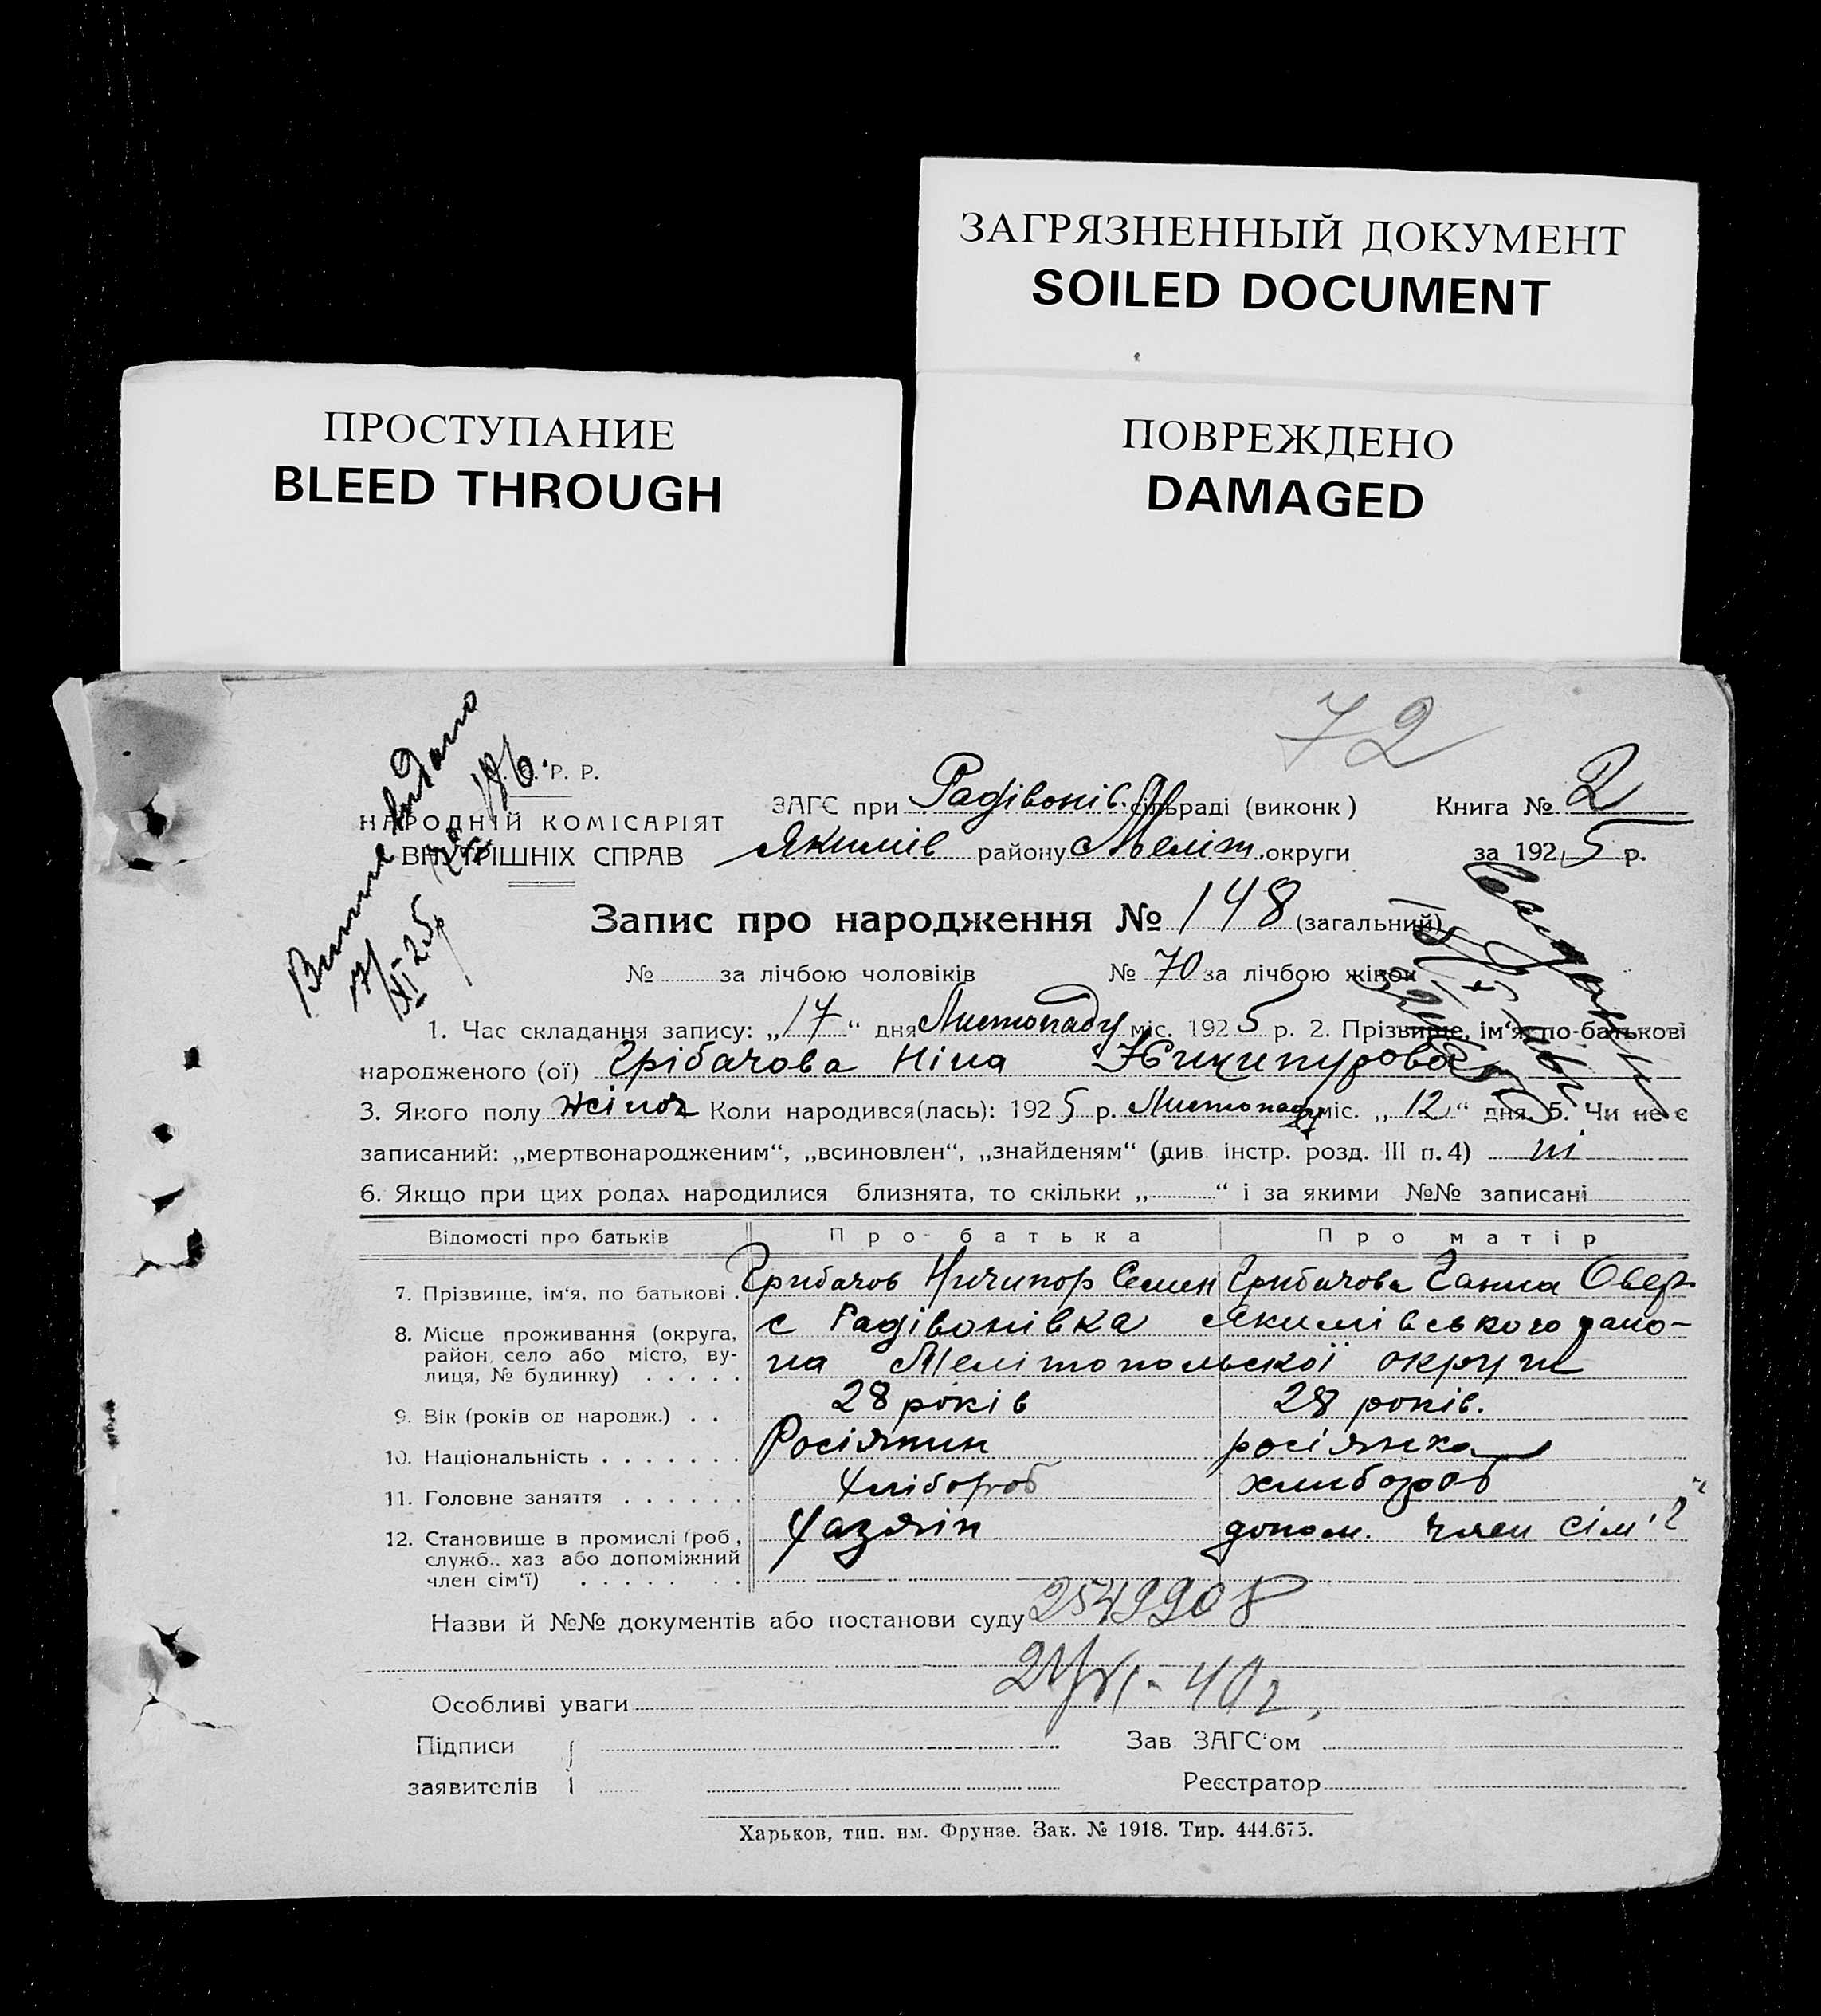 ЗАГРЯЗНЕННЫЙ ДОКУМЕНТ
SOILED DOCUMENT
ПРОСТУПАНИЕ
BLEED THROUGH
ПОВРЕЖДЕНО
DAMAGED
72
Р. Р.
НАРОДНІЙ КОМІСАРІЯТ
ВНУТРІШНІХ СПРАВ
Виписе видано
17/XI-25р
ЗАГС при Радівонів. сільраді (виконк) Книга № 2
Якимів району Меліт. округи за 1925 р.
Запис про народження № 148 (загальний)
№ за лічбою чоловіків № 70 за лічбою жінок
1. Час складання запису: „17“ дня Листопаду міс. 1925 р. 2. Прізвище, ім‘я, по-батькові
народженого (ої) Грібачова Ніна Ничипурова
3. Якого полу жіноч Коли народився(лась): 1925 р. Листопаду міс. „12“ дня 5. Чи не є
записаний: „мертвонародженим“, „всиновлен“, „знайденям“ (див. інстр. розд. III п. 4) ні
6. Якщо при цих родах народилися близнята, то скільки „ “ і за якими №№ записані
Відомості про батьків Про батька Про матір
7. Прізвище, ім‘я, по батькові. Грибачов Ничипор Семен Грибачова Ганна Овер.
8. Місце проживання (округа, район, село або місто, вулиця, № будинку) с Радівонівка Якимівського райо-
на Мелітопольскої округи
9. Вік (років од народж.) 28 років 28 років.
10. Національність Росіянин росіянка
11. Головне заняття Хлібороб хлибороб
12. Становище в промислі (роб, служб., хаз або допоміжний член сім‘ї) Хазяін допом. член сім'ї
Назви й №№ документів або постанови суду 2549908
Особливі уваги
Підписи Зав ЗАГС‘ом
заявителів Реєстратор
Харьков, тип. им. Фрунзе. Зак. № 1918. Тир. 444.675.